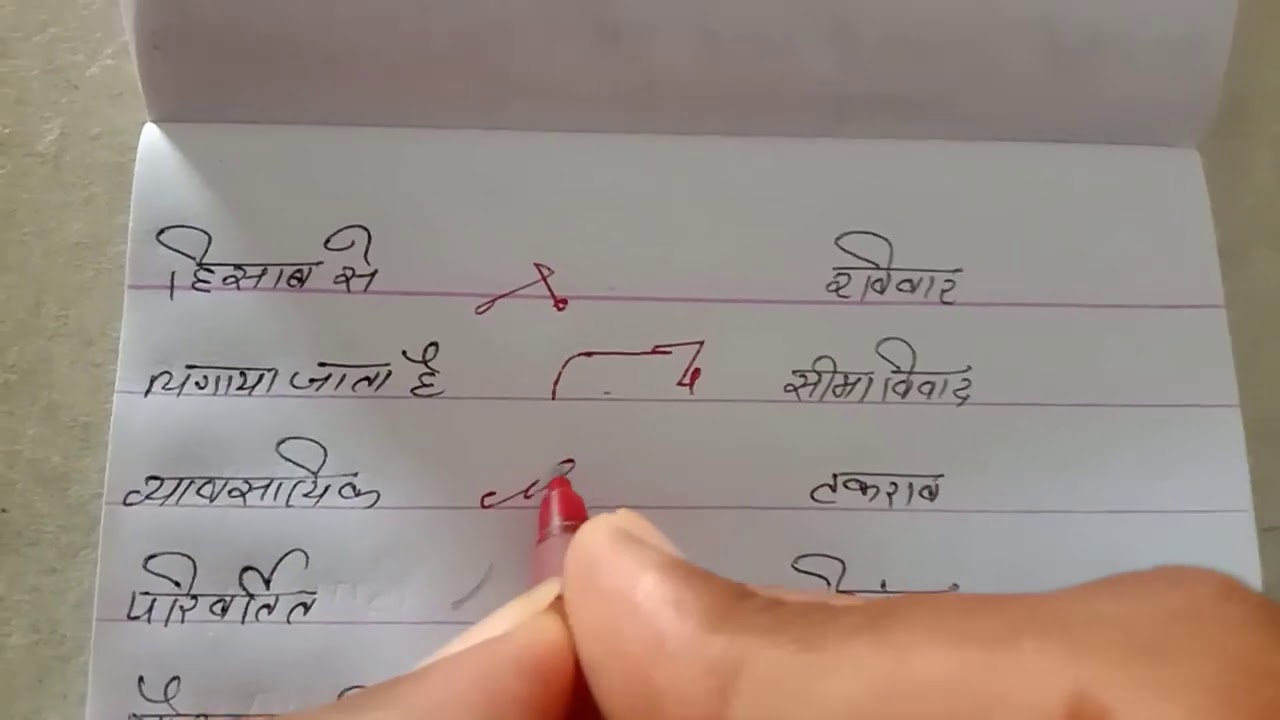 हिसाब से रविवार
लगाया जाता है सीमा विवाद
व्यावसायिक टकराव
परिवर्तित